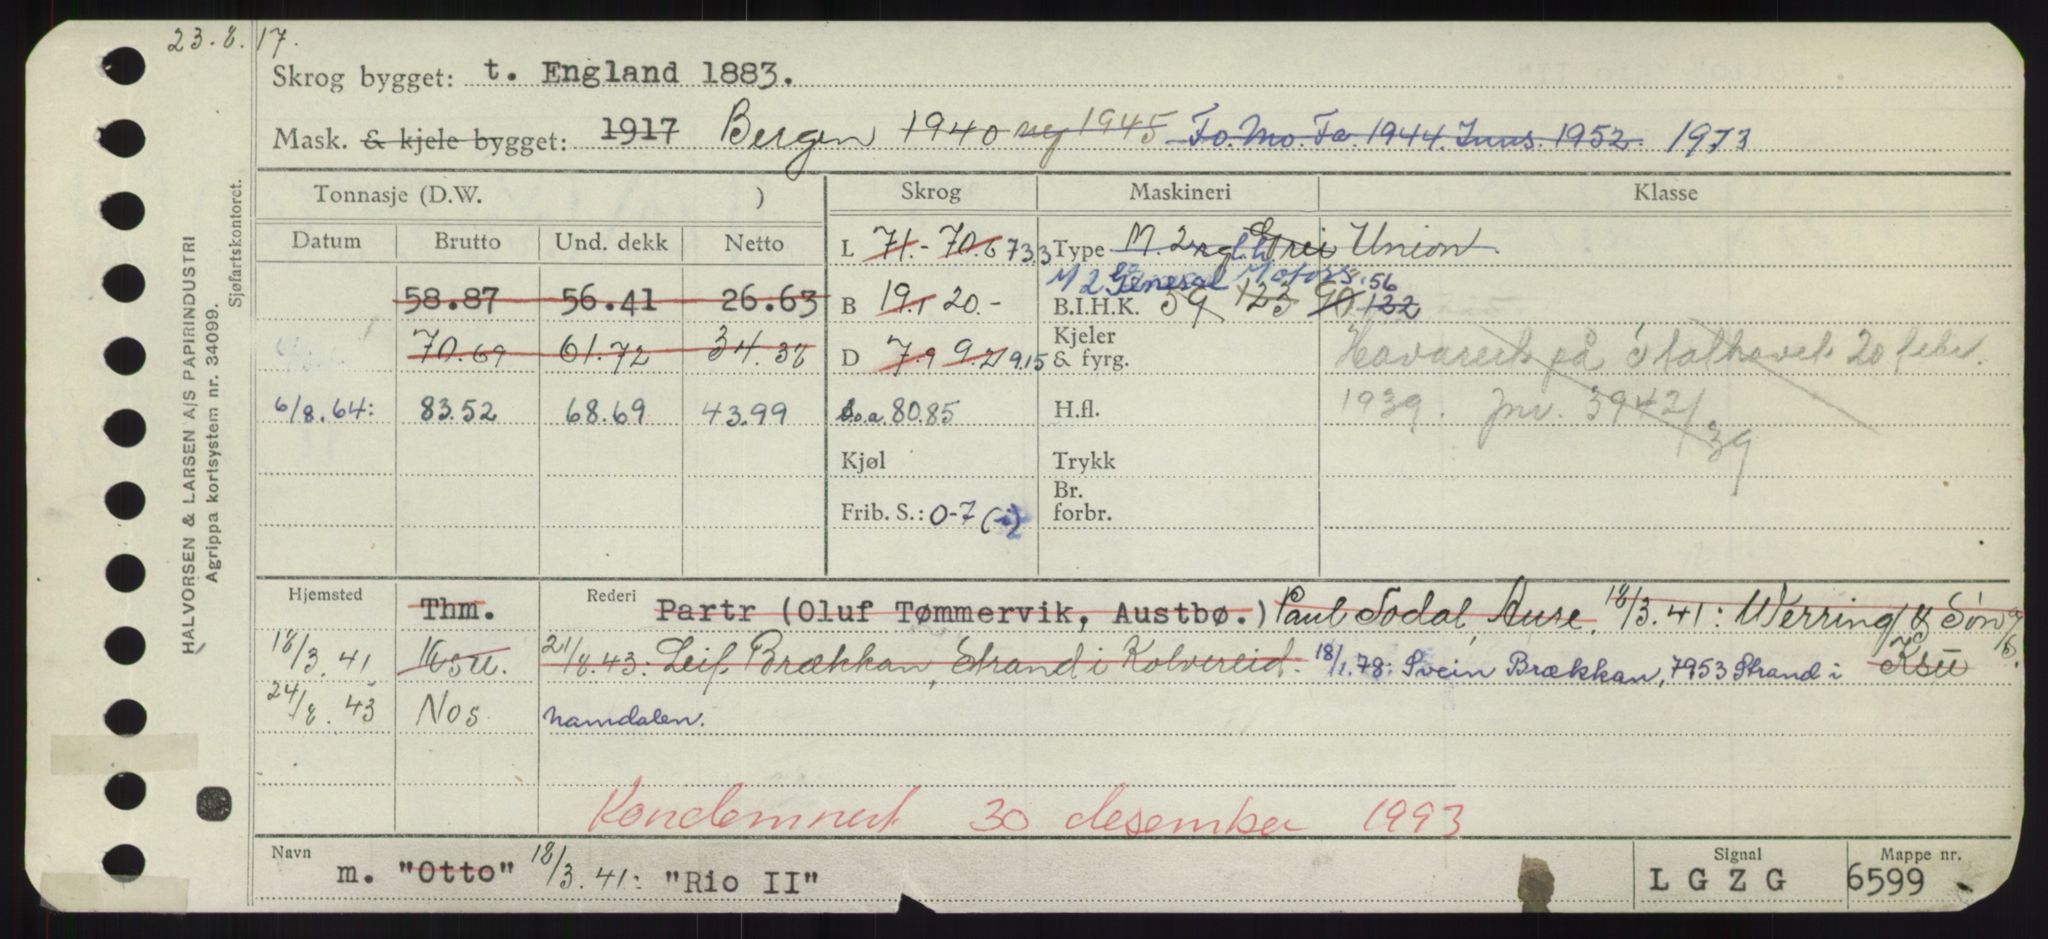 23.8.17.
HALVORSEN & LARSEN A/S PAPIRINDUSTRI
Agrippa kortsystem nr. 34099.
Sjøfartskontoret.
Skrog bygget: t. England 1883.
Mask. & kjele bygget: 1917 Bergen 1940 ny 1945 Fo. Mo. Fa. 1944. Inns. 1952. 1973
Tonnasje (D.W. ) Skrog Maskineri Klasse
Datum Brutto Und. dekk Netto
L 71.- 70.6 73,3 Type M. 2 Union
58.87 56.41 26.63
M 2 General Motors. 56
B 19.1 20.- B.I.H.K. 39 123 90 122
70.69 61.72 34.38
D 7.9 9.2 9.15 Kjeler & fyrg.
Havarert på Stathavet 20 febr.
6/8.64: 83.52 68.69 43.99 L.o.a. 80.85 H.fl.
1939. Jnr. 3942/39
Kjøl Trykk
Frib. S.: 0-7 Br. forbr.
Hjemsted Thm. Rederi Partr (Oluf Tømmervik, Austbø.) Paul Sodal, Aure. 18/3.41: Werring & Søn
18/3.41 Ksu. 21/8.43: Leif Brækkan, Strand i Kolvereid. 18/1.78: Svein Brækkan, 7953 Strand i Ksu
24/8.43 Nos namdalen.
Kondemnert 30 desember 1993
Navn m. "Otto" 18/3.41: "Rio II" Signal LGZG Mappe nr. 6599